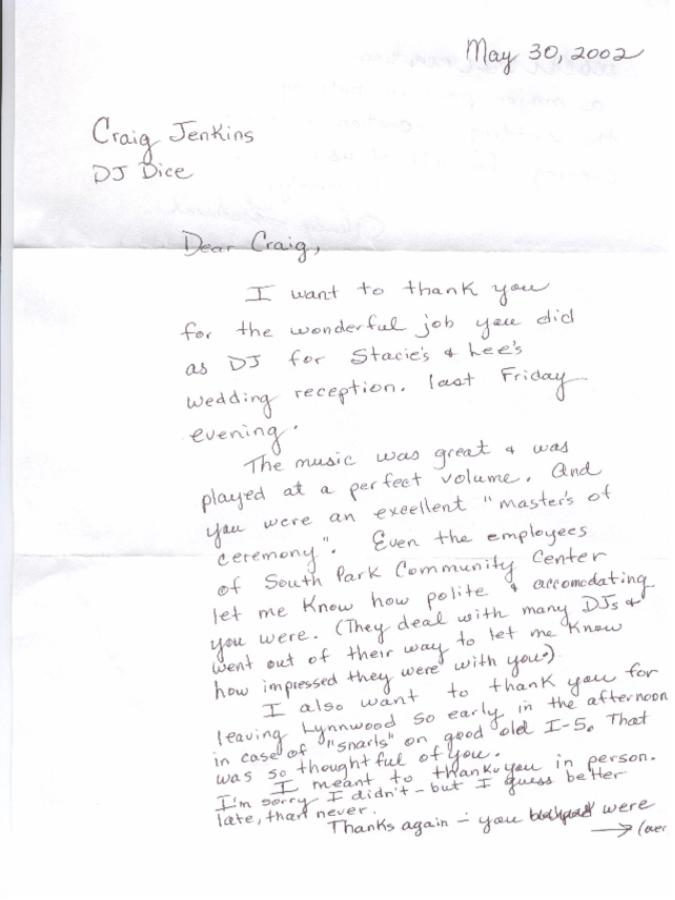 May 30, 2002
Craig Jenkins
DJ Dice
Dear Craig,
I want to thank you
for the wonderful job you did
as DJ for Stacie's & Lee's
wedding reception. last Friday
evening.
The music was great & was
played at a perfect volume. And
you were an excellent "master's of
ceremony". Even the employees
of South Park Community Center
let me know how polite & accomodating
you were. (They deal with many DJs &
went out of their way to let me know
how impressed they were with you.)
I also want to thank you for
leaving Lynnwood so early in the afternoon
in case of "snarls" on good old I-5. That
was so thoughtful of you.
I meant to thank you in person.
I'm sorry I didn't - but I guess better
late, than never.
Thanks again - you were
→ (over